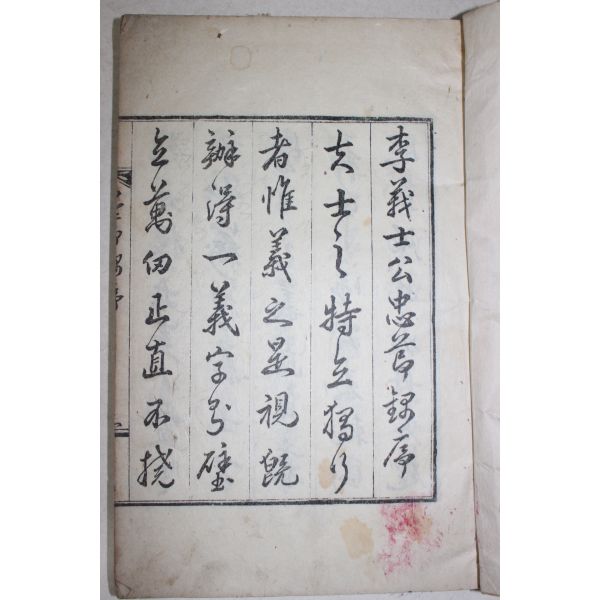 李義士公忠節錄序
夫士之特立獨行
者惟義之是視旣
辦得一義字則壁
立萬仞正直不撓